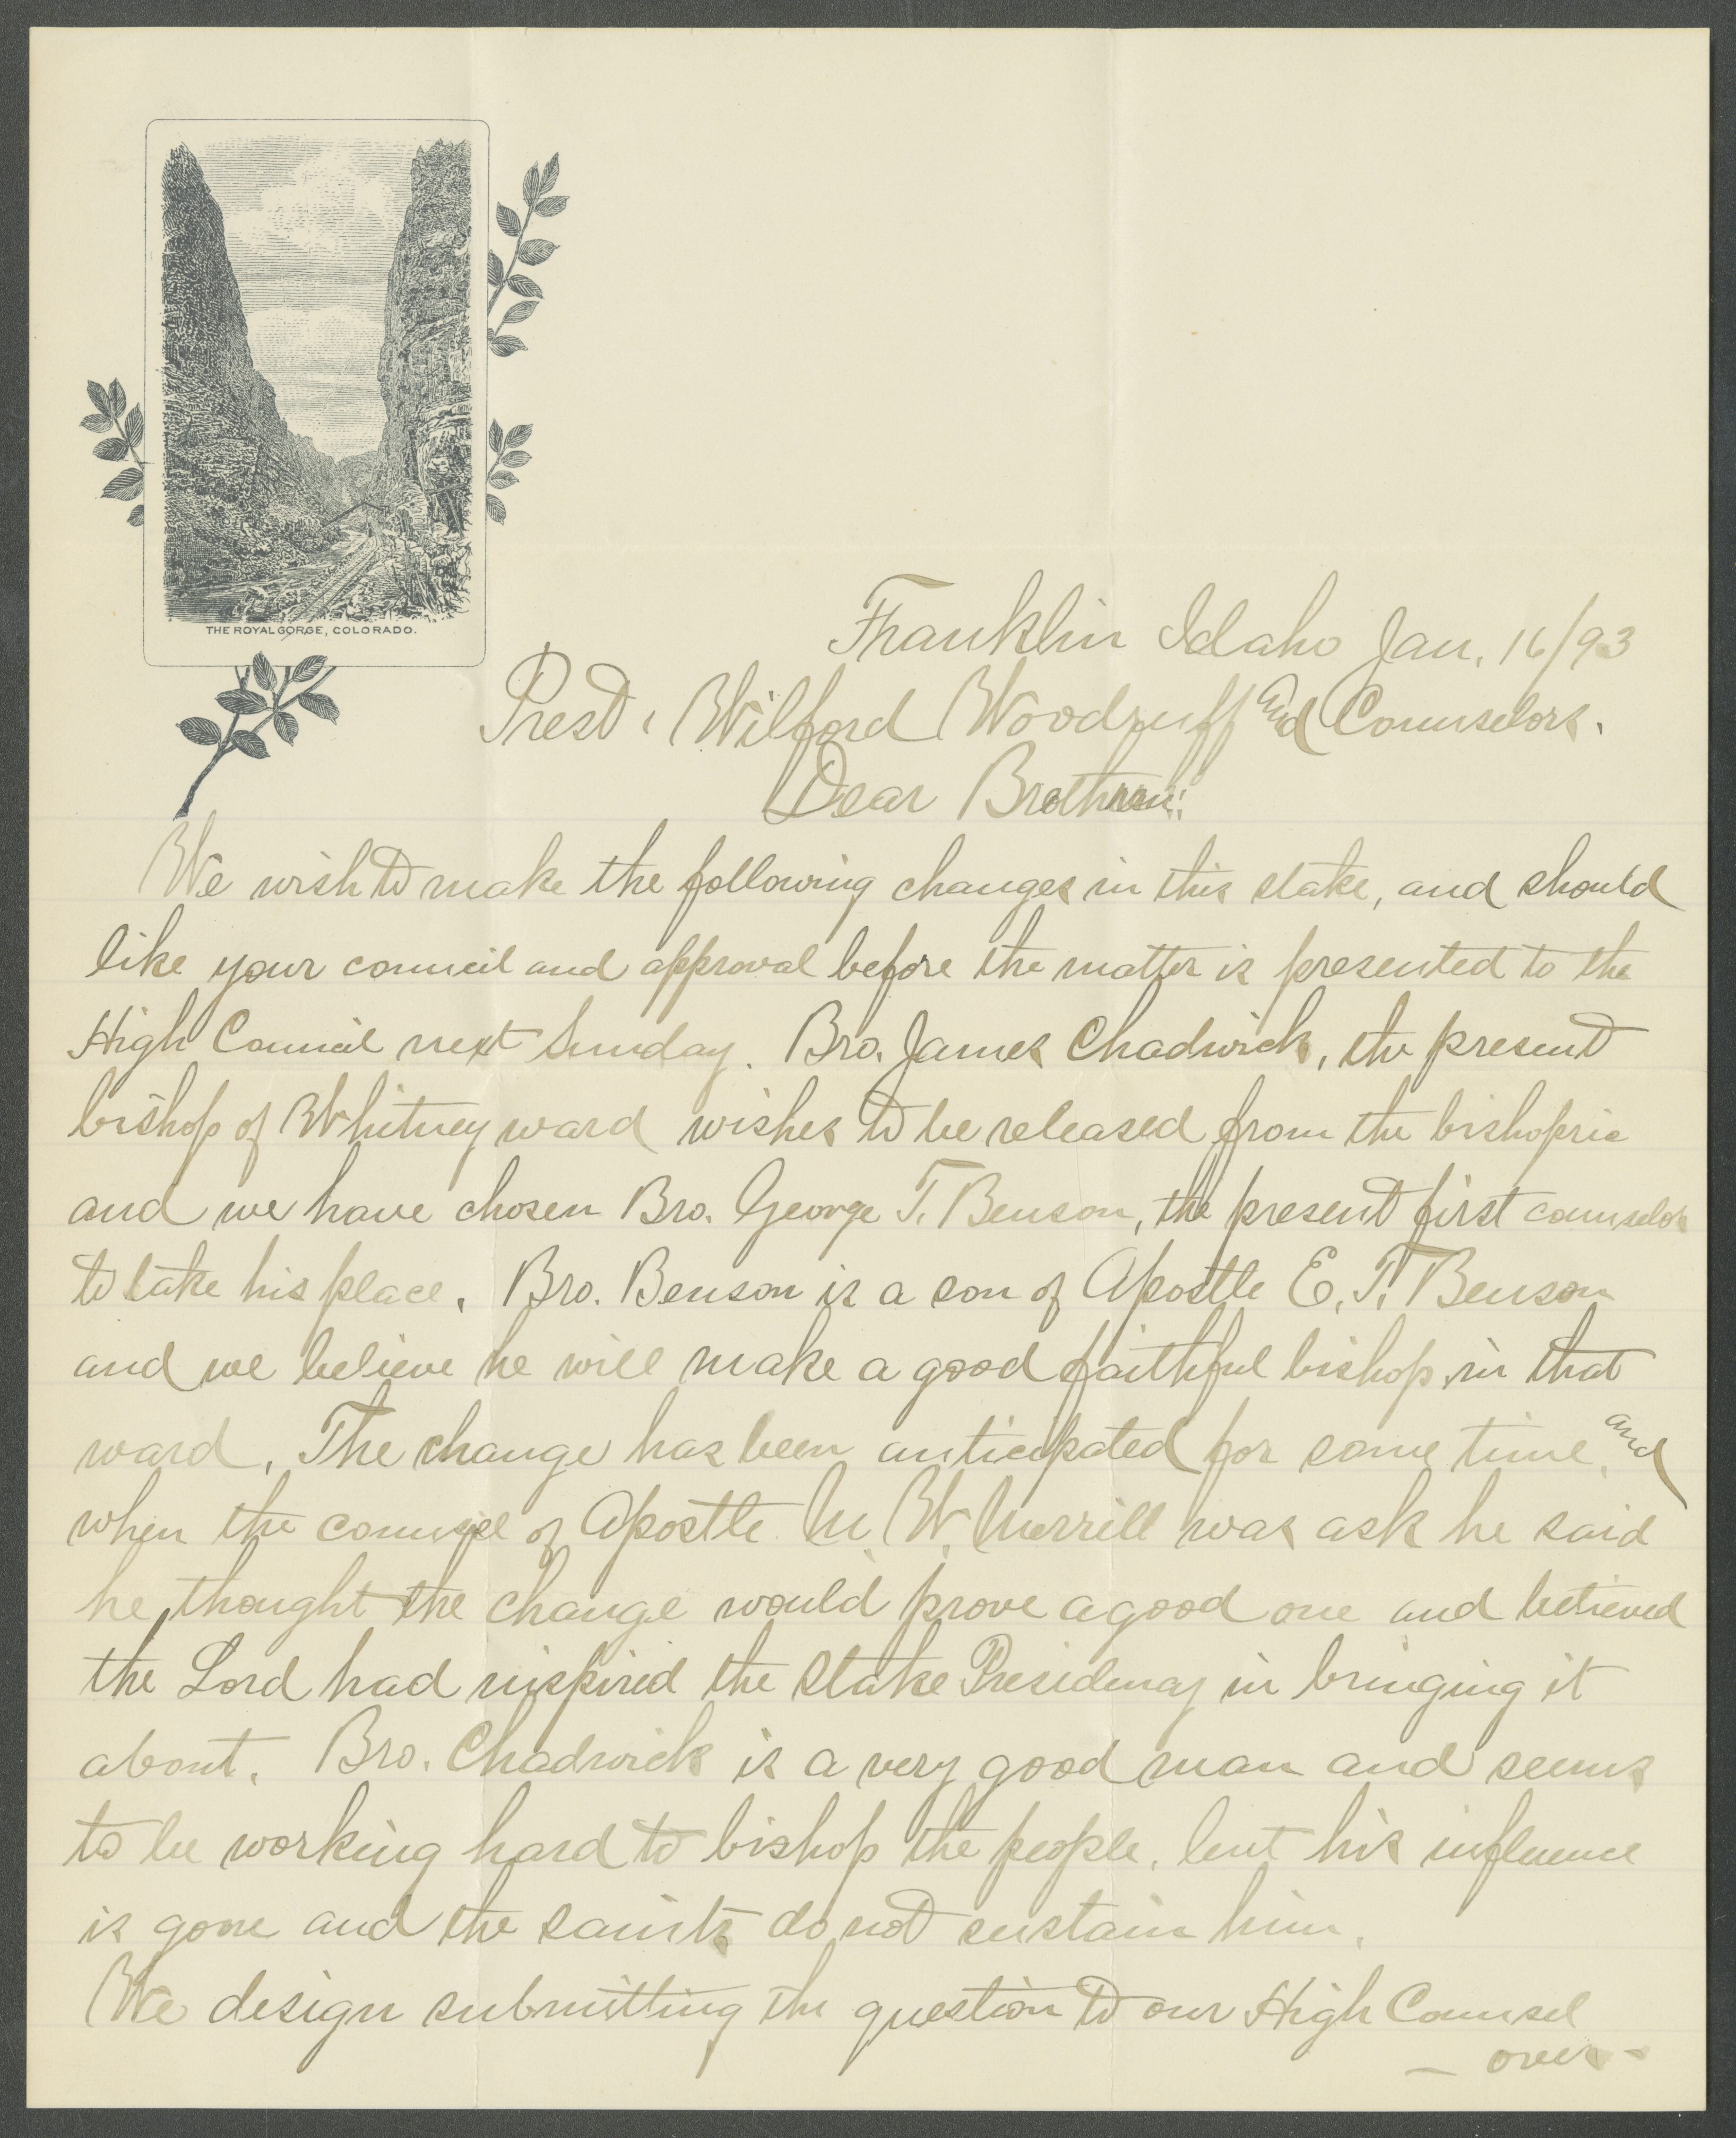 THE ROYAL GORGE, COLORADO.
Franklin Idaho Jan. 16/93
Prest. Wilford Woodruff and Counselors.
Dear Brethren:
We wish to make the following changes in this stake, and should
like your council and approval before the matter is presented to the
High Council next Sunday. Bro. James Chadwick, the present
bishop of Whitney ward wishes to be released from the bishopric
and we have chosen Bro. George T. Benson, the present first counselor
to take his place. Bro. Benson is a son of Apostle E. T. Benson
and we believe he will make a good faithful bishop in that
ward. The change has been anticipated for some time, and
when the counsel of Apostle M. W. Merrill was ask he said
he thought the change would prove a good one and believed
the Lord had inspired the Stake Presidency in bringing it
about. Bro. Chadwick is a very good man and seems
to be working hard to bishop the people, but his influence
is gone and the saints do not sustain him.
We design submitting the question to our High Counsel
- over -